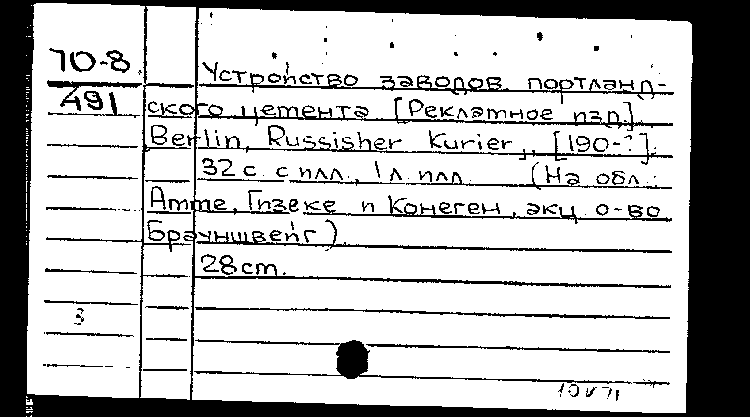 70-8
491
Устройство заводов портланд-
ского цемента [Рекламное изд.]
Berlin, Russisher Kurier, [190-?].
32 с. с илл., 1 л илл. (На обл.:
Амме, Гизеке и Конеген, акц о-во
Брауншвейг)
28cm.
3